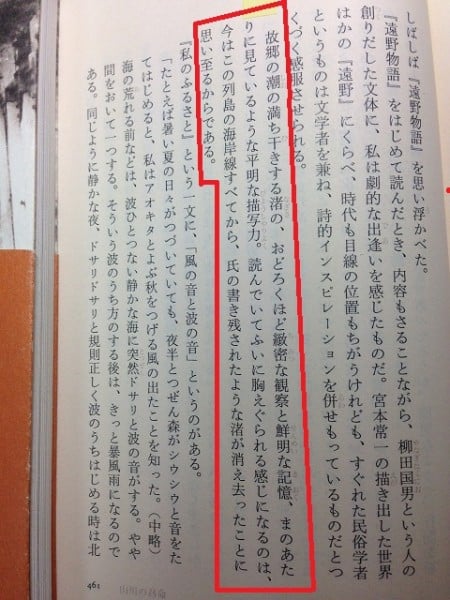 しばしば『遠野物語』を思い浮かべた。
『遠野物語』をはじめて読んだとき、内容もさることながら、柳田国男という人の
創りだした文体に、私は劇的な出逢いを感じたものだ。宮本常一の描き出した世界
はかの『遠野』にくらべ、時代も目線の位置もちがうけれども、すぐれた民俗学者
というものは文学者を兼ね、詩的インスピレーションを併せもっているものだとつ
くづく感服させられる。
故郷の潮の満ち干きする渚の、おどろくほど緻密な観察と鮮明な記憶、まのあた
りに見ているような平明な描写力。読んでいてふいに胸えぐられる感じになるのは、
今はこの列島の海岸線すべてから、氏の書き残されたような渚が消え去ったことに
思い至るからである。
『私のふるさと』という一文に、「風の音と波の音」というのがある。
「たとえば暑い夏の日々がつづいていても、夜半とつぜん森がシウシウと音をた
てはじめると、私はアオキタとよぶ秋をつげる風の出たことを知った。（中略）
海の荒れる前などは、波ひとつない静かな海に突然ドサリと波の音がする。やや
間をおいて一つする。そういう波のうち方のする後は、きっと暴風雨になるので
ある。同じように静かな夜、ドサリドサリと規則正しく波のうちはじめる時は北
461